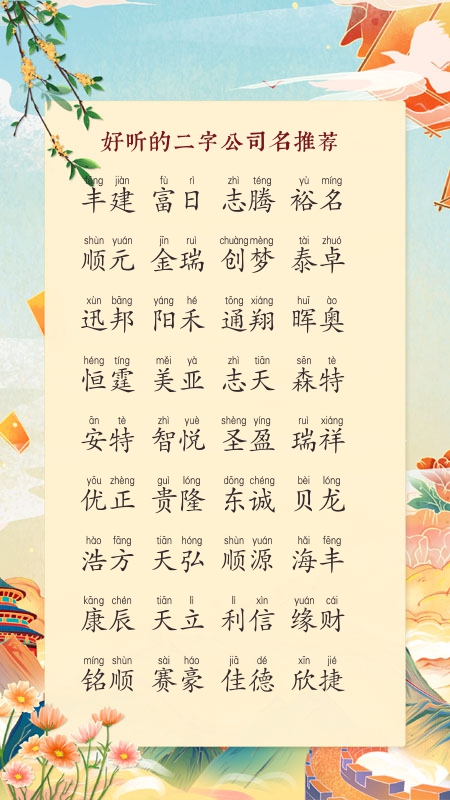 好听的二字公司名推荐
fēng jiàn fù rì zhì téng yù míng
丰建 富日 志腾 裕名
shùn yuán jīn ruì chuàng mèng tài zhuó
顺元 金瑞 创梦 泰卓
xùn bāng yáng hé tōng xiáng huī ào
迅邦 阳禾 通翔 晖奥
héng tíng měi yà zhì tiān sēn tè
恒霆 美亚 志天 森特
ān tè zhì yuè shèng yíng ruì xiáng
安特 智悦 圣盈 瑞祥
yōu zhèng guì lóng dōng chéng bèi lóng
优正 贵隆 东诚 贝龙
hào fāng tiān hóng shùn yuán hǎi fēng
浩方 天弘 顺源 海丰
kāng chén tiān lì lì xìn yuán cái
康辰 天立 利信 缘财
míng shùn sài háo jiā dé xīn jié
铭顺 赛豪 佳德 欣捷